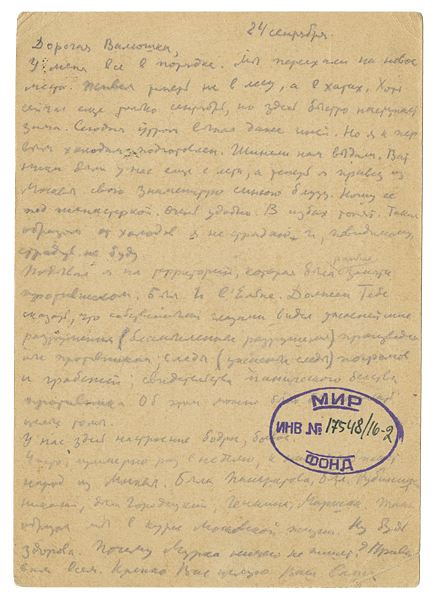 24 сентября
Дорогая Валюшка,
У меня всё в порядке. Мы переехали на новое
место. Живем теперь не в лесу, а в хатах. Хотя
сейчас еще только сентябрь, но здесь быстро наступает
зима. Сегодня утром выпал даже иней. Но я к
холодам подготовлен. Шинели нам выдали. Ват
ники были у нас еще с лета, а теперь я привез из
Москвы свою знаменитую синюю блузу. Ношу её
под гимнастеркой. Очень удобно. В избах топят. Таким
образом от холодов я не страдаю и, повидимому,
страдать не буду.
Побывал я на территории, которая была ранее занята
противником. Был и в Ельне. Должен Тебе
сказать, что собственными глазами видел ужаснейшие
разрушения (бессмысленные разрушения) произведен
ные противником. Следы (ужасные следы) пожаров
и грабежей, свидетельства панического бегства
противника. Об этом можно
У нас здесь настроение бодрое, боевое.
примерно раз в неделю, к
народ из Москвы. Была Панкратова,
был Городецкий, Генкина,
образом мы в курсе Московской жизни. Ну будь
здорова. Почему Мурка ничего не пишет? Привет
вам всем. Крепко Вас целую Ваш
МИР
ИНВ. № 17548/16-2
ФОНД